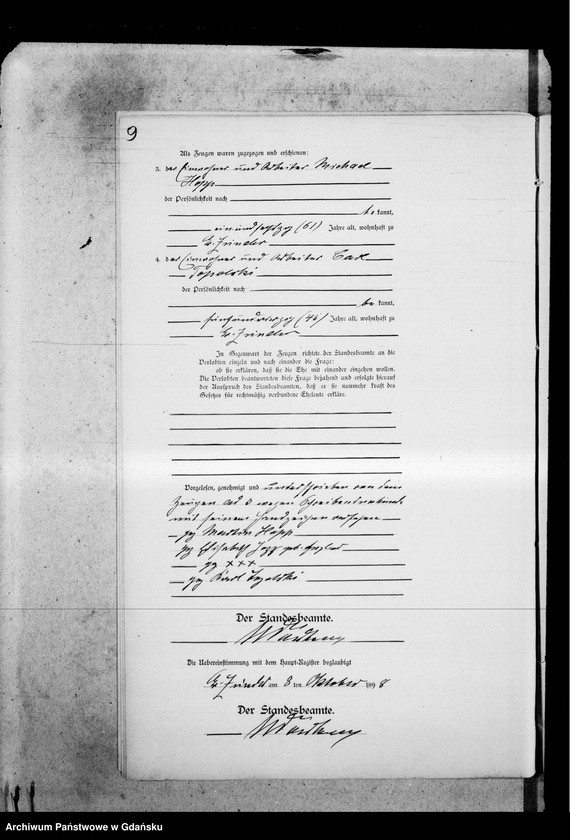 9
Als Zeugen waren zugezogen und erschienen:
3. der Einwohner und Arbeiter Michael
Hopp
der Persönlichkeit nach
be kannt,
einundsechzig (61) Jahre alt, wohnhaft zu
Gr. Zünder
4. der Einwohner und Arbeiter Carl
Topolski
der Persönlichkeit nach
be kannt,
fünfundvierzig (45) Jahre alt, wohnhaft zu
Gr. Zünder
In Gegenwart der Zeugen richtete der Standesbeamte an die
Verlobten einzeln und nach einander die Frage:
ob sie erklären, daß sie die Ehe mit einander eingehen wollen.
Die Verlobten beantworteten diese Frage bejahend und erfolgte hierauf
der Ausspruch des Standesbeamten, daß er sie nunmehr kraft des
Gesetzes für rechtmäßig verbundene Eheleute erkläre.
Vorgelesen, genehmigt und unterschrieben von dem
Zeugen ad 3 wegen Schreibensunkunde
mit seinem Handzeichen versehen
gez Hopp
gez Elisabeth Hopp geb.
gez + + +
gez Karl Topolski
Der Standesbeamte.
Die Uebereinstimmung mit dem Haupt-Register beglaubigt
Gr. Zünder am 8 ten Oktober 1898
Der Standesbeamte.
Archiwum Państwowe w Gdańsku